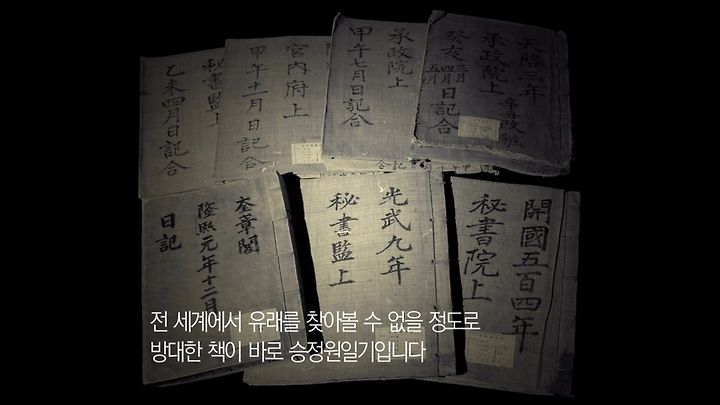 秘書監上
乙未四月日記合
宮內府上
甲午十一月日記合
承政院上
甲午七月日記合
天啓三年
承政院上
癸亥三月四月五月日記合
奎章閣
隆熙元年十二月
日記
光武九年
秘書監上
開國五百四年
秘書院上
전 세계에서 유래를 찾아볼 수 없을 정도로
방대한 책이 바로 승정원일기입니다